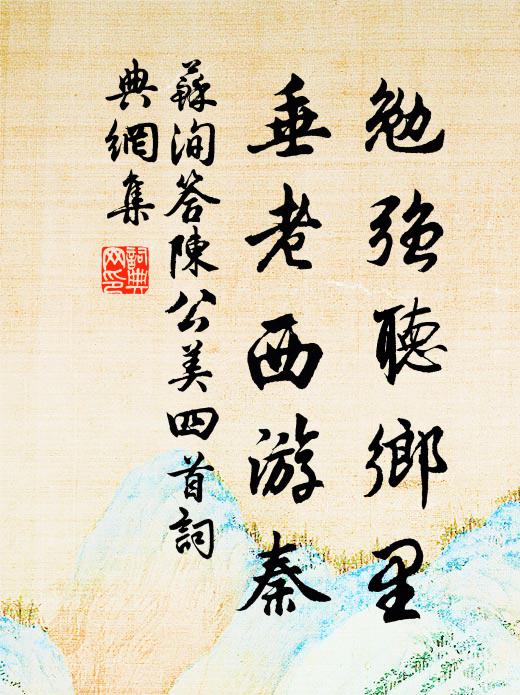 勉強聽鄉里
垂老西游秦
蘇洵答陳公美四首詞
典網集
詞典
网印